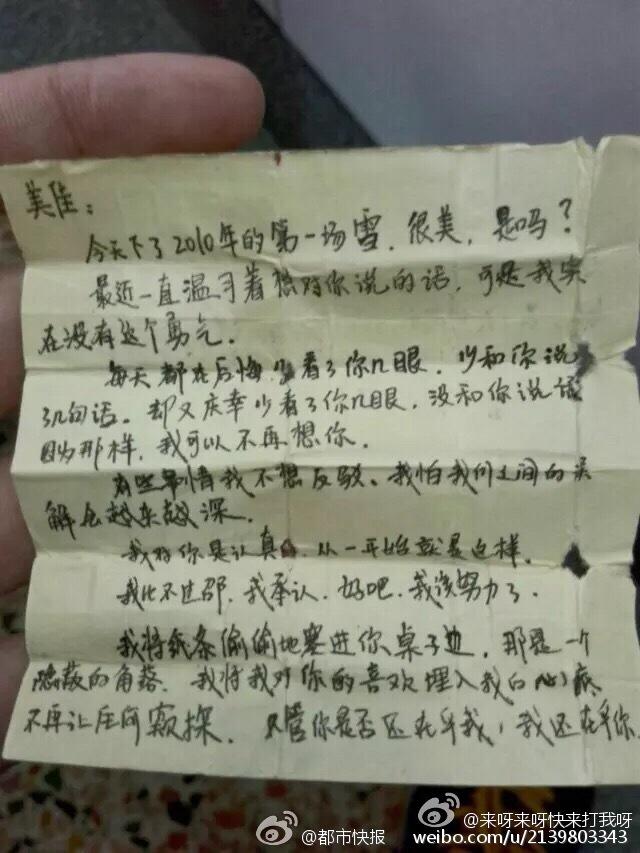 美佳：
今天下了2010年的第一场雪，很美，是吗？
最近一直温习着想对你说的话，可是我实
在没有这个勇气。
每天都在后悔少看了你几眼，少和你说
了几句话。却又庆幸少看了你几眼，没和你说话
因为那样，我可以不再想你。
有些事情我不想反驳、我怕我们之间的误
解会越来越深。
我对你是认真的，从一开始就是这样。
我比不过邵，我承认，好吧，我该努力了。
我将纸条偷偷地塞进你桌子边，那是一个
隐蔽的角落，我将我对你的喜欢埋入我的心底
不再让任何窥探，不管你是否还在乎我，我还在乎你
@都市快报
@来呀来呀快来打我呀
weibo.com/u/2139803343